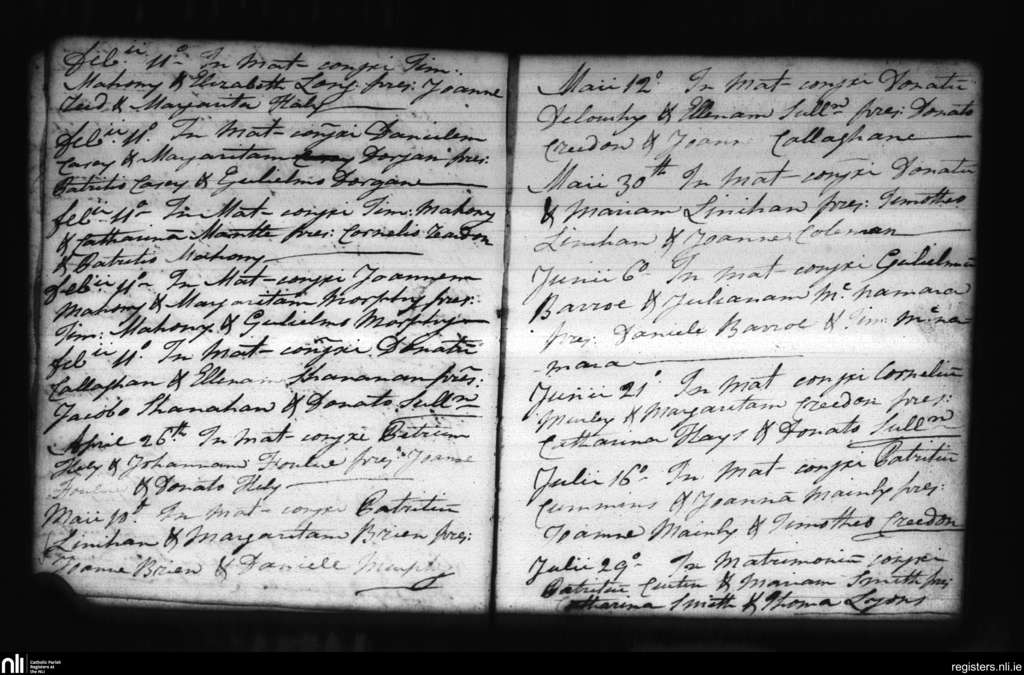 Feb.ii 11o In Mat- conjxi Tim:
Mahony & Elizabeth Long pres: Joanne
& Margarita Haly
Feb.ii 11o In Mat- conjxi Danielem
Casey & Margaritam Dorgan pres:
Patritio Casey & Gulielmo Dorgan
Feb.ii 11o In Mat- conjxi Tim: Mahony
& Catharina pres: Cornelio
& Patritio Mahony
Feb.ii 11o In Mat- conjxi Joannem
Mahony & Margaritam Morphy pres:
Tim: Mahony & Gulielmo Morphy
Feb.ii 11o In Mat- conjxi Donatū
Callaghan & Ellenam Shanahan pres:
Jacobo Shanahan & Donato Sulln
April 26th In Mat- conjxi Patrium
Hely & Johannam pres: Joanne
& Donato Hely
Maii 10o In Mat- conjxi Patritiū
Linihan & Margaritam Brien pres:
Joanne Brien & Daniele
Maii 12o In Mat- conjxi Donatū
& Ellenam Sulln pres: Donato
Creedon & Joanne Callaghane
Maii 30th In Mat- conjxi Donatū
& Mariam Linihan pres: Timotheo
Linihan & Joanne Coleman
Junii 6o In Mat- conjxi Gulielmū
Barroe & Julianam Mc namara
pres: Daniele Barroe & Tim: Mc na-
-mara
Junii 21o In Mat conjxi Corneliū
Murley & Margaritam Creedon pres:
Catharina Hays & Donato Sulln
Julii 16o In Mat- conjxi Patritiū
Cummins & Joannā Mainly pres:
Joanne Mainly & Timotheo Creedon
Julii 29o In Matrimoniū conjxi
Patritiū Curtin & Mariam Smith pres:
Catharina Smith & Thoma Lyons
nli
Catholic Parish
Registers at
the NLI
registers.nli.ie